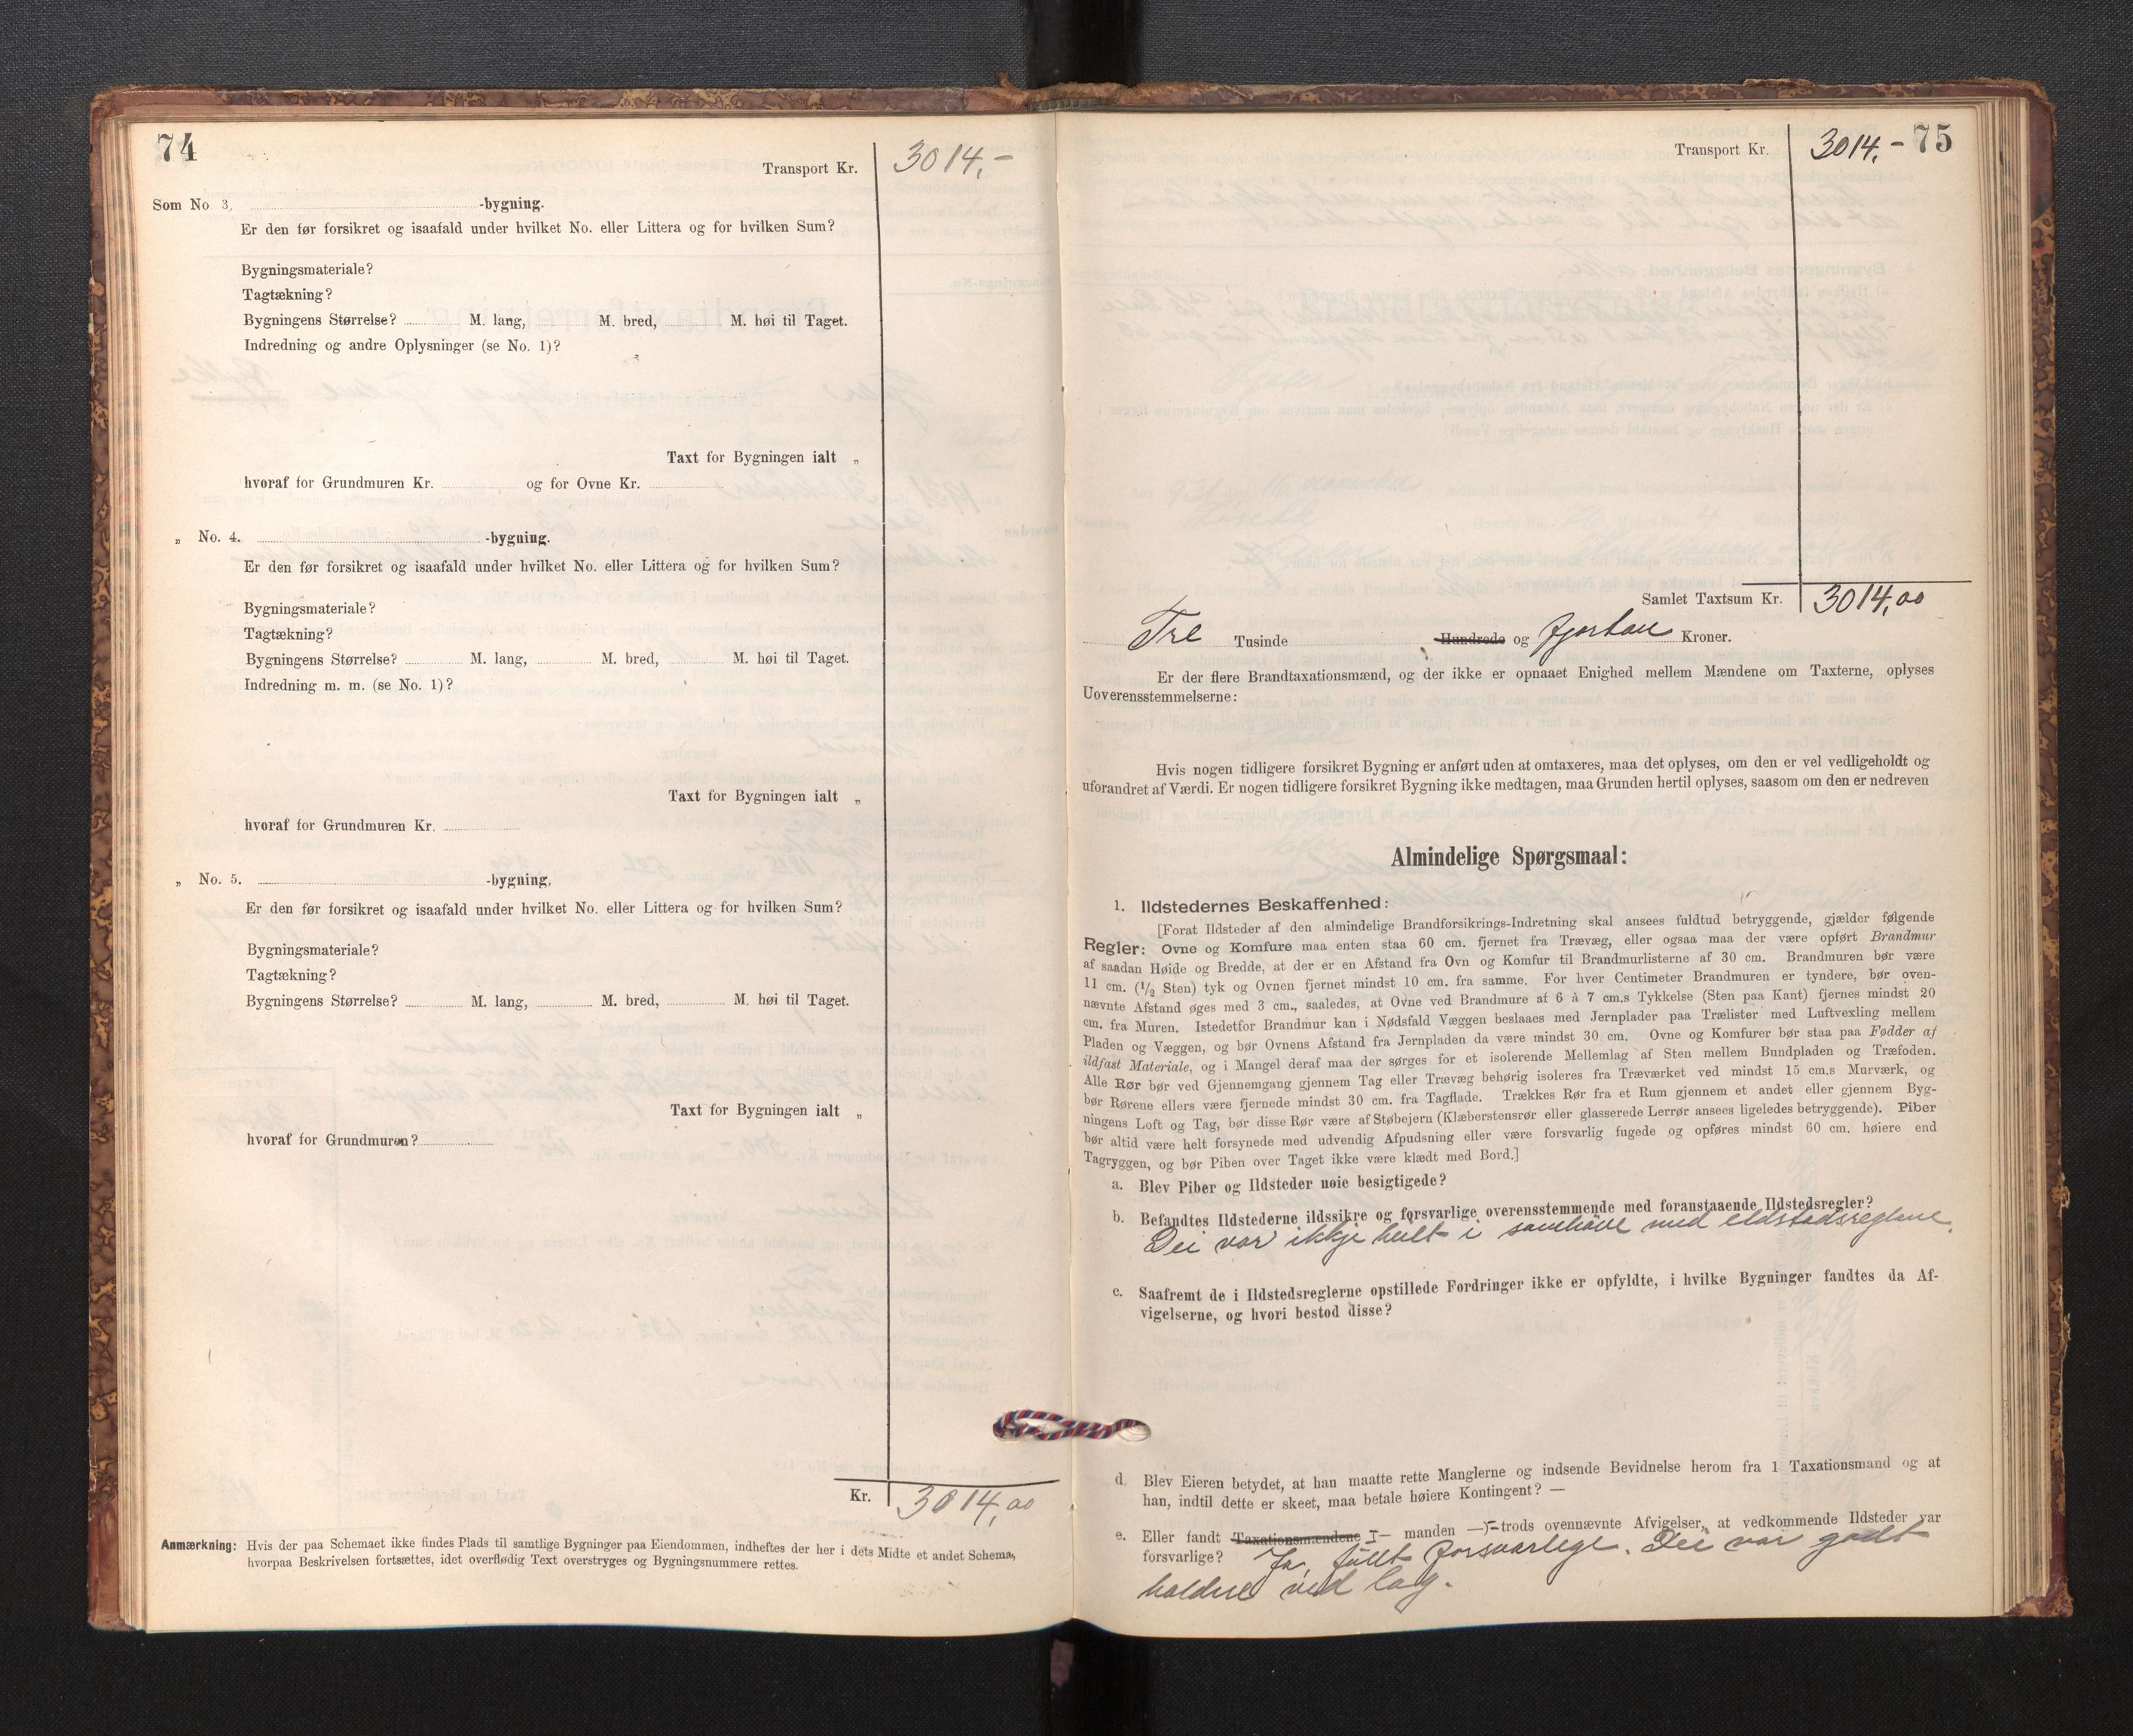 74
Transport Kr. 3014,-
Som No 3, -bygning.
Er den før forsikret og isaafald under hvilket No. eller Littera og for hvilken Sum?
Bygningsmateriale?
Tagtækning?
Bygningens Størrelse? M. lang, M. bred, M. høi til Taget.
Indredning og andre Oplysninger (se No. 1)?
Taxt for Bygningen ialt „
hvoraf for Grundmuren Kr. og for Ovne Kr.
„ No. 4. -bygning.
Er den før forsikret og isaafald under hvilket No. eller Littera og for hvilken Sum?
Bygningsmateriale?
Tagtækning?
Bygningens Størrelse? M. lang, M. bred, M. høi til Taget.
Indredning m. m. (se No. 1)?
Taxt for Bygningen ialt „
hvoraf for Grundmuren Kr.
„ No. 5. -bygning,
Er den før forsikret og isaafald under hvilket No. eller Littera og for hvilken Sum?
Bygningsmateriale?
Tagtækning?
Bygningens Størrelse? M. lang, M. bred, M. høi til Taget.
Taxt for Bygningen ialt „
hvoraf for Grundmuren?
Kr. 3014,00
Anmærkning: Hvis der paa Schemaet ikke findes Plads til samtlige Bygninger paa Eiendommen, indheftes der her i dets Midte et andet Schema,
hvorpaa Beskrivelsen fortsættes, idet overflødig Text overstryges og Bygningsnummere rettes.
Transport Kr. 3014,- 75
Samlet Taxtsum Kr. 3014,00
Tre Tusinde Hundrede og fjortan Kroner.
Er der flere Brandtaxationsmænd, og der ikke er opnaaet Enighed mellem Mændene om Taxterne, oplyses
Uoverensstemmelserne:
Hvis nogen tidligere forsikret Bygning er anført uden at omtaxeres, maa det oplyses, om den er vel vedligeholdt og
uforandret af Værdi. Er nogen tidligere forsikret Bygning ikke medtagen, maa Grunden hertil oplyses, saasom om den er nedreven
Almindelige Spørgsmaal:
1. Ildstedernes Beskaffenhed:
[Forat Ildsteder af den almindelige Brandforsikrings-Indretning skal ansees fuldtud betryggende, gjælder følgende
Regler: Ovne og Komfure maa enten staa 60 cm. fjernet fra Trævæg, eller ogsaa maa der være opført Brandmur
af saadan Høide og Bredde, at der er en Afstand fra Ovn og Komfur til Brandmurlisterne af 30 cm. Brandmuren bør være
11 cm. (1/2 Sten) tyk og Ovnen fjernet mindst 10 cm. fra samme. For hver Centimeter Brandmuren er tyndere, bør oven-
nævnte Afstand øges med 3 cm., saaledes, at Ovne ved Brandmure af 6 à 7 cm.s Tykkelse (Sten paa Kant) fjernes mindst 20
cm. fra Muren. Istedetfor Brandmur kan i Nødsfald Væggen beslaaes med Jernplader paa Trælister med Luftvexling mellem
Pladen og Væggen, og bør Ovnens Afstand fra Jernpladen da være mindst 30 cm. Ovne og Komfurer bør staa paa Fødder af
ildfast Materiale, og i Mangel deraf maa der sørges for et isolerende Mellemlag af Sten mellem Bundpladen og Træfoden.
Alle Rør bør ved Gjennemgang gjennem Tag eller Trævæg behørig isoleres fra Træværket ved mindst 15 cm.s Murværk, og
bør Rørene ellers være fjernede mindst 30 cm. fra Tagflade. Trækkes Rør fra et Rum gjennem et andet eller gjennem Byg-
ningens Loft og Tag, bør disse Rør være af Støbejern (Klæberstensrør eller glasserede Lerrør ansees ligeledes betryggende). Piber
bør altid være helt forsynede med udvendig Afpudsning eller være forsvarlig fugede og opføres mindst 60 cm. høiere end
Tagryggen, og bør Piben over Taget ikke være klædt med Bord.]
a. Blev Piber og Ildsteder nøie besigtigede?
b. Befandtes Ildstederne ildssikre og forsvarlige overensstemmende med foranstaaende Ildstedsregler?
Dei var ikkje heilt i samhöve med eldstadsreglane.
c. Saafremt de i Ildstedsreglerne opstillede Fordringer ikke er opfyldte, i hvilke Bygninger fandtes da Af-
vigelserne, og hvori bestod disse?
d. Blev Eieren betydet, at han maatte rette Manglerne og indsende Bevidnelse herom fra 1 Taxationsmand og at
han, indtil dette er skeet, maa betale høiere Kontingent? —
e. Eller fandt Taxationsmændene T— manden — trods ovennævnte Afvigelser, at vedkommende Ildsteder var
forsvarlige? Ja, fullt forsvarlege. Dei var godt
haldne ved lag.